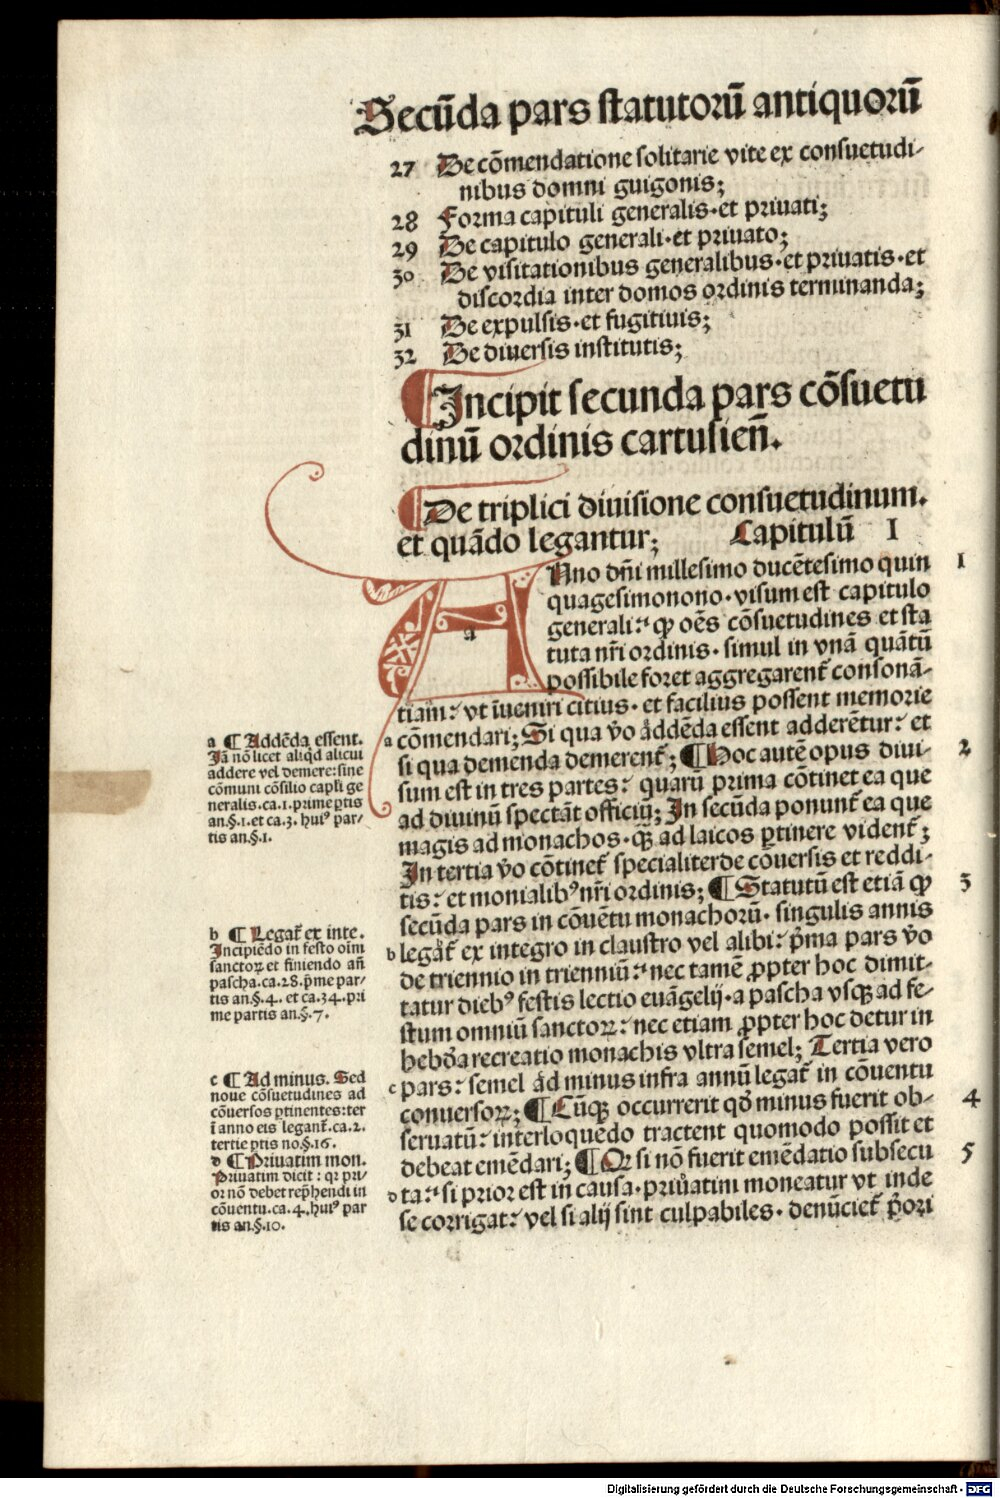 Secūda pars statutorū antiquorū
27 De cōmendatione solitarie vite ex consuetudi-
nibus domni guigonis;
28 Forma capituli generalis·et priuati;
29 De capitulo generali·et priuato;
30 De visitationibus generalibus·et priuatis·et
discordia inter domos ordinis terminanda;
31 De expulsis·et fugitiuis;
32 De diuersis institutis;
¶Incipit secunda pars cōsuetu
dinū ordinis cartusien̄.
¶De triplici diuisione consuetudinum.
et quādo legantur; Capitulū I
Anno dn̄i millesimo ducētesimo quin 1
quagesimonono·visum est capitulo
generali: ꝙ oēs cōsuetudines et sta
tuta nr̄i ordinis·simul in vnā quātū
possibile foret aggregarent᷑ consonā-
tiam: vt īueniri citius·et facilius possent memorie
a cōmendari; Si qua v̄o addēda essent adderētur: et
si qua demenda demerent᷑; ¶Hoc autē opus diui- 2
sum est in tres partes: quarū prima cōtinet ea que
ad diuinū spectāt officiū; In secūda ponunt᷑ ea que
magis ad monachos·ꝙ̄ ad laicos ꝑtinere vident᷑;
In tertia v̄o cōtinet᷑ specialiter de cōuersis et reddi-
tis: et monialibꝰ nr̄i ordinis; ¶Statutū est etiā ꝙ 3
secūda pars in cōuētu monachorū·singulis annis
b legat᷑ ex integro in claustro vel alibi: p̄ma pars v̄o
de triennio in trienniū: nec tamē ꝓpter hoc dimit-
tatur diebꝰ festis lectio euāgelij·a pascha vsqꝫ ad fe-
stum omniū sanctoꝝ: nec etiam ꝓpter hoc detur in
hebd̄a recreatio monachis vltra semel; Tertia vero
c pars: semel ad minus infra annū legat᷑ in cōuentu
conuersoꝝ; ¶Cūqꝫ occurrerit qd̄ minus fuerit ob- 4
seruatū: interloquēdo tractent quomodo possit et
debeat emēdari; ¶Qr si nō fuerit emēdatio subsecu 5
d ta: si prior est in causa·priuatim moneatur vt inde
se corrigat: vel si alij sint culpabiles·denūciet᷑ p̄ori
a ¶ Addēda essent.
Iā nō licet aliqd alicui
addere vel demere: sine
cōmuni cōsilio capl̄i ge
neralis.ca.1.prime ꝑtis
an.§.1.et ca.3. huiꝰ par-
tis an.§.1.
b ¶ Legat᷑ ex inte.
Incipiēdo in festo oīm
sanctoꝝ et finiendo an̄
pascha.ca.28.p̄me par-
tis an.§.4. et ca.34.pri
me partis an.§.7.
c ¶ Ad minus. Sed
noue cōsuetudines ad
cōuersos ꝑtinentes: ter
ī anno eis legant᷑.ca.2.
tertie ꝑtis no.§.16.
d ¶Priuatim mon.
Priuatim dicit: qr pri-
or nō debet rep̄hendi in
cōuentu.ca.4.huiꝰ par
tis an.§.10.
Digitalisierung gefördert durch die Deutsche Forschungsgemeinschaft - DFG